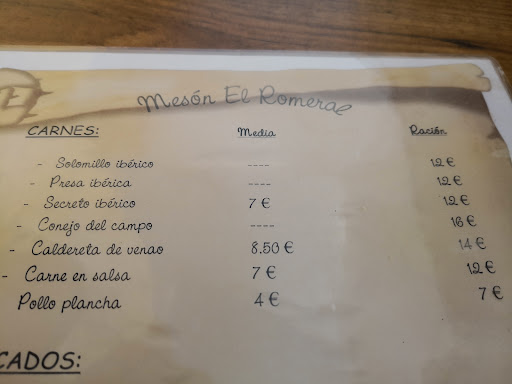 E
Mesón El Romeral
CARNES: Media Ración
- Solomillo ibérico ---- 12 €
- Presa ibérica ---- 12 €
- Secreto ibérico 7 € 12 €
- Conejo del campo ---- 16 €
- Caldereta de venao 8.50 € 14 €
- Carne en salsa 7 € 12 €
Pollo plancha 4 € 7 €
CADOS: